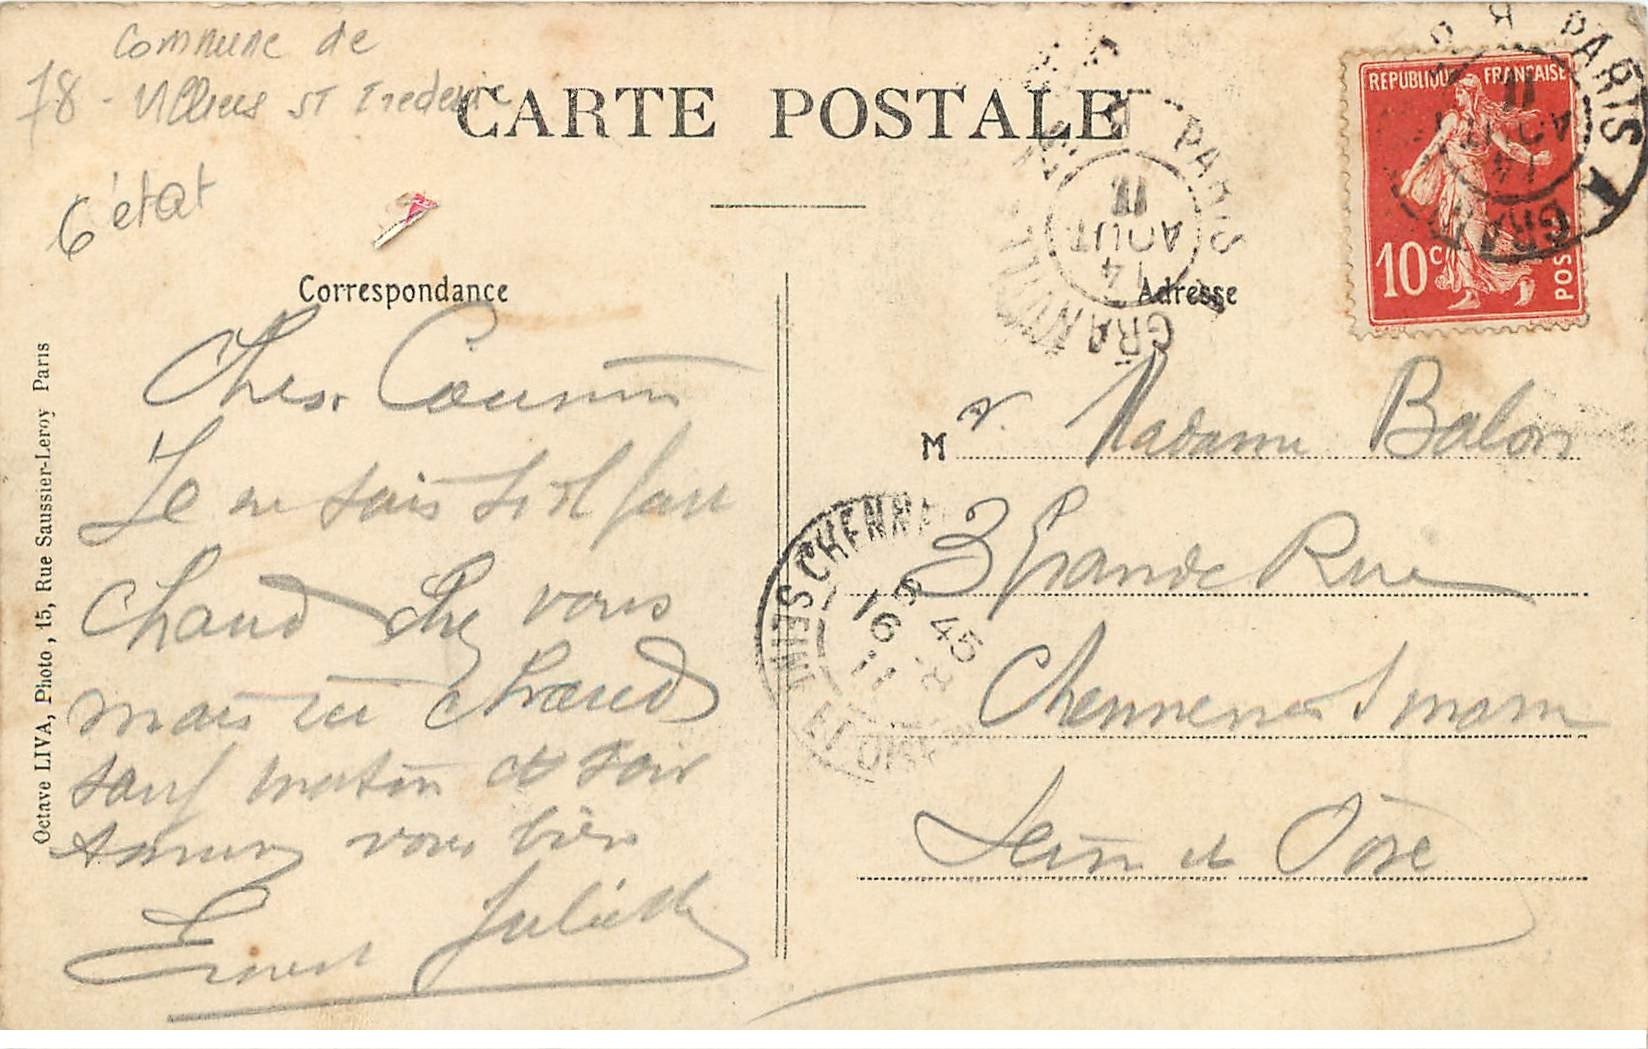 Commune de
78 - Villiers St Frederic
CARTE POSTALE
6 état
Correspondance
Cher Cousin
Je ne sais s'il fait
chaud chez vous
mais ici chaud
sauf matin et soir
vous bien
Juliette
Ernest
Octave LIVA, Photo, 45, Rue Saussier-Leroy Paris
Adresse
M r. Madame Balon
3 Grande Rue
Chennevieres s marn
Seine et Oise
REPUBLIQUE FRANÇAISE
10 c POS
PARIS
GRANV
14 AOUT 11
PARIS
GRAN
14 AOUT 11
CHENNE
SEINE ET OISE
8 45
16 - 8
11